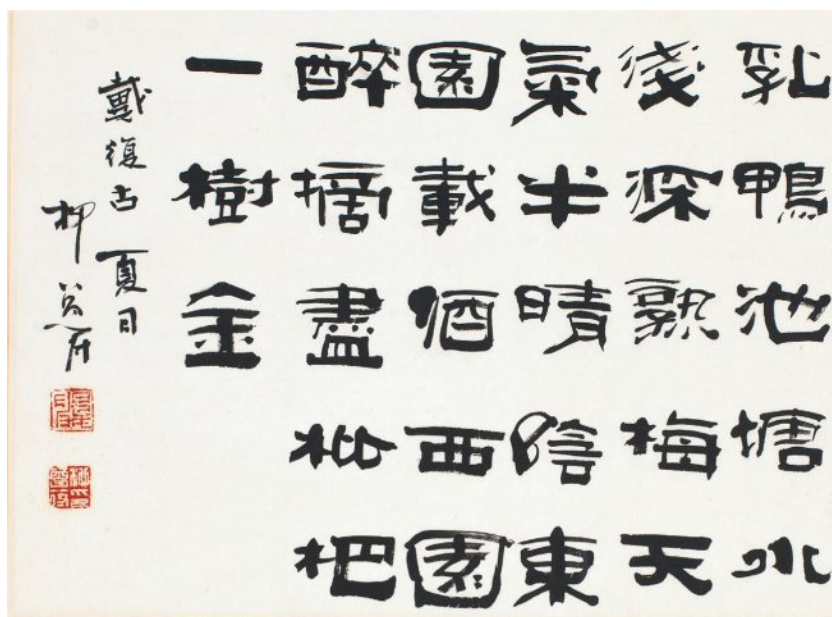 乳鴨池塘水
淺深熟梅天
氣半晴陰東
園載酒西園
醉摘盡枇杷
一樹金
戴復古 夏日
柳曾符